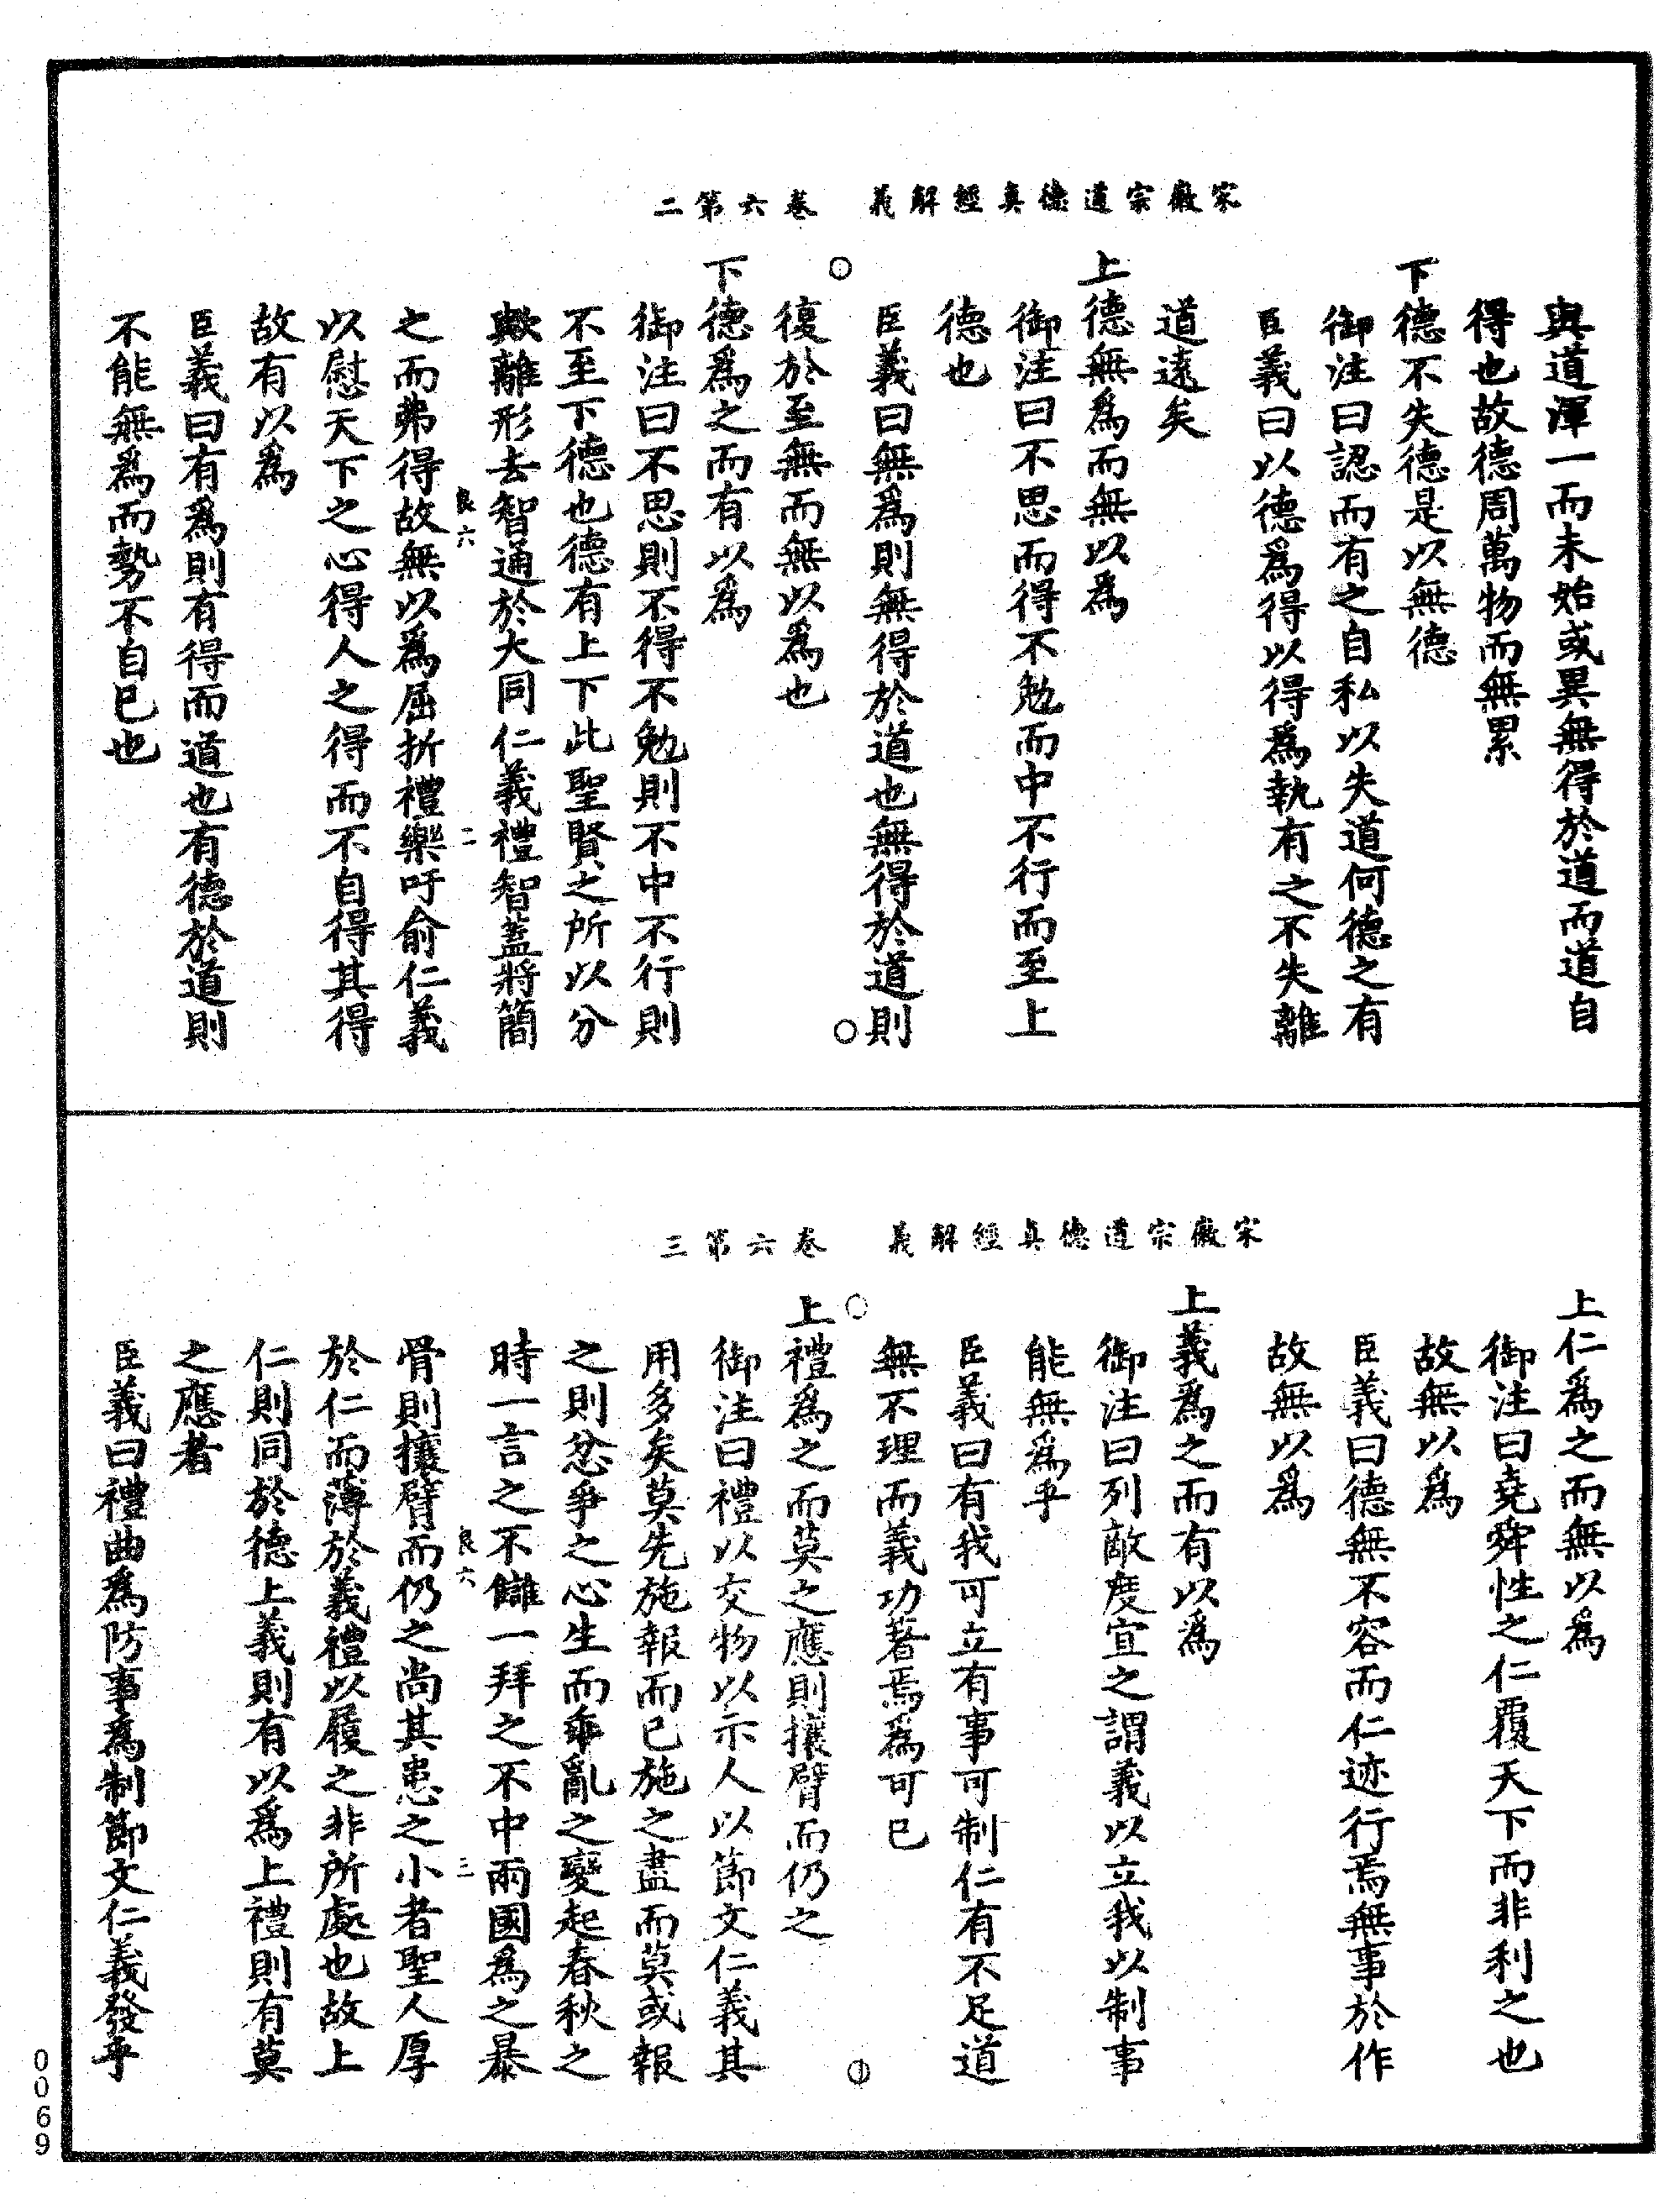 宋徽宗道德真經解義　卷六第二
與道渾一而未始或異無得於道而道自
得也故德周萬物而無累
下德不失德是以無德
御注曰認而有之自私以失道何德之有
臣義曰以德爲得以得爲執有之不失離
道遠矣
上德無爲而無以爲
御注曰不思而得不勉而中不行而至上
德也
臣義曰無爲則無得於道也無得於道則
復於至無而無以爲也
下德爲之而有以爲
御注曰不思則不得不勉則不中不行則
不至下德也德有上下此聖賢之所以分
歟離形去智通於大同仁義禮智蓋將簡
良六　二
之而弗得故無以爲屈折禮樂吁俞仁義
以慰天下之心得人之得而不自得其得
故有以爲
臣義曰有爲則有得而道也有德於道則
不能無爲而勢不自已也
宋徽宗道德真經解義　卷六第三
上仁爲之而無以爲
御注曰堯舜性之仁覆天下而非利之也
故無以爲
臣義曰德無不容而仁迹行焉無事於作
故無以爲
上義爲之而有以爲
御注曰列敵度宜之謂義以立我以制事
能無爲乎
臣義曰有我可立有事可制仁有不足道
無不理而義功著焉爲可已
上禮爲之而莫之應則攘臂而仍之
御注曰禮以交物以示人以節文仁義其
用多矣莫先施報而已施之盡而莫或報
之則忿爭之心生而乖亂之變起春秋之
時一言之不讎一拜之不中兩國爲之暴
良六　三
骨則攘臂而仍之尚其患之小者聖人厚
於仁而薄於義禮以履之非所處也故上
仁則同於德上義則有以爲上禮則有莫
之應者
臣義曰禮曲爲防事爲制節文仁義發乎
0069